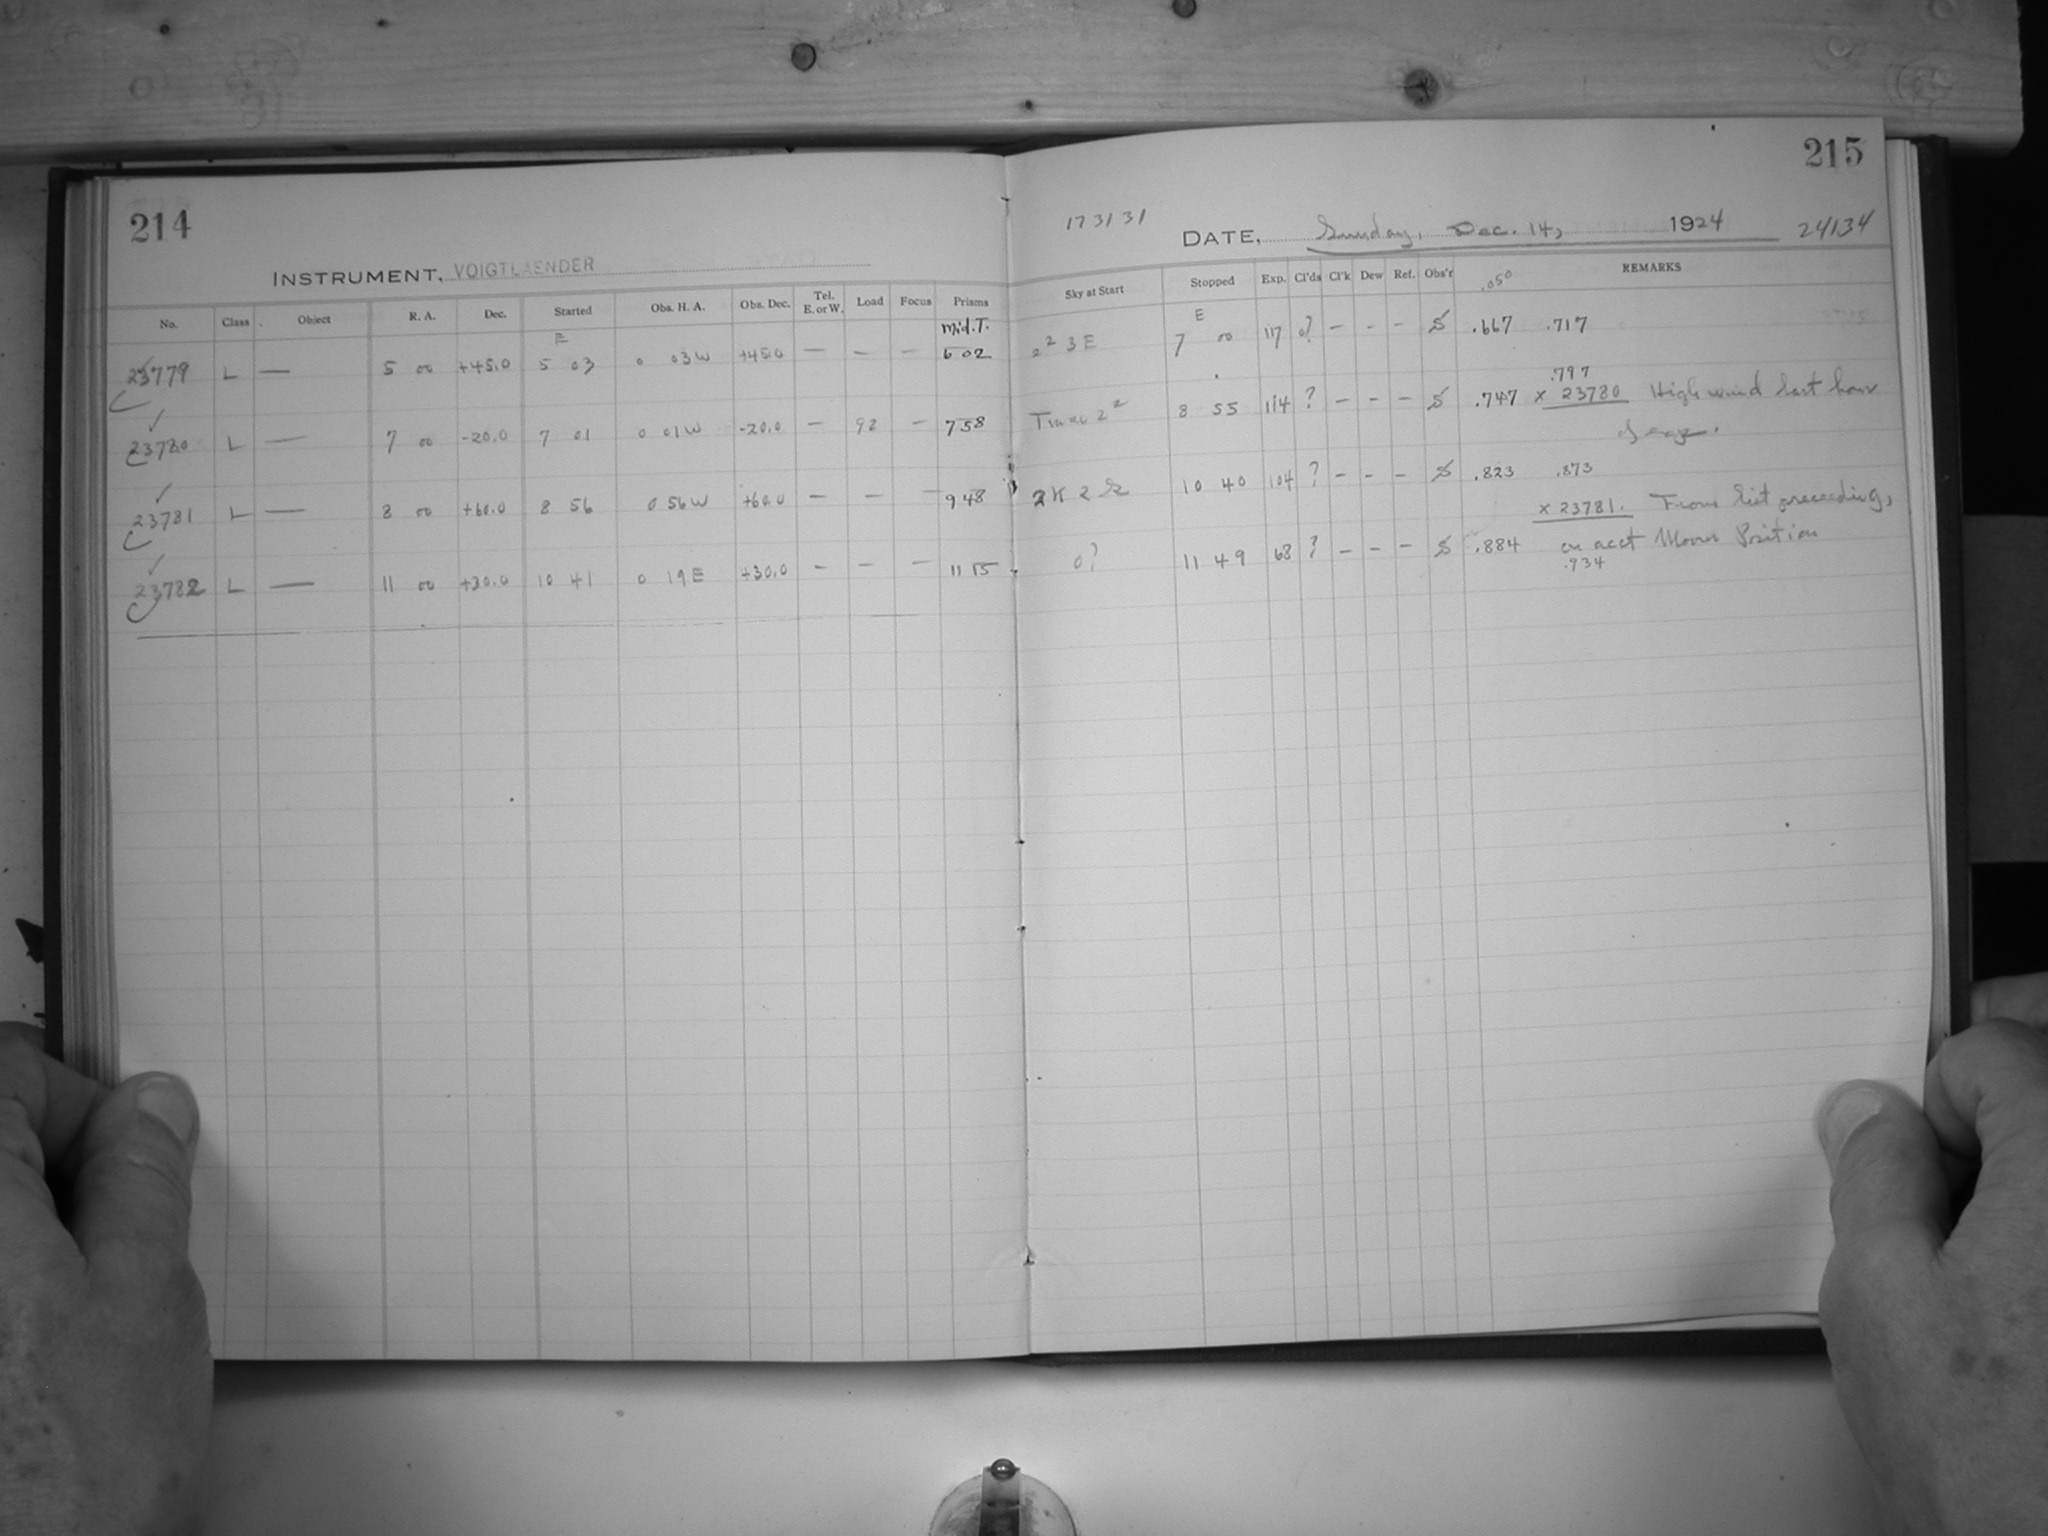 214
INSTRUMENT, VOIGTLAENDER
No. Class Object R. A. Dec. Started Obs. H. A. Obs. Dec. Tel. E. or W. Load Focus Prisms
E Mid. T.
23779 L — 5 00 +45.0 5 03 0 03W +45.0 — — — 6 02
23780 L — 7 00 -20.0 7 01 0 01W -20.0 — 92 — 7 58
23781 L — 8 00 +60.0 8 56 0 56W +60.0 — — — 9 48
23782 L — 11 00 +30.0 10 41 0 19E +30.0 — — — 11 15
215
173131
DATE, Sunday, Dec. 14, 1924 24134
Sky at Start Stopped Exp. Cl'ds Cl'k Dew Ref. Obs'r .050 REMARKS
E
2² 3 E 7 00 117 0? — — — S .667 .717
.797
2² 8 55 114 ? — — — S .747 x 23780 High wind last hour
of exp.
2 K 2 10 40 104 ? — — — S .823 .873
x 23781. From list preceeding,
0? 11 49 68 ? — — — S .884 on acct Moons Position
.934